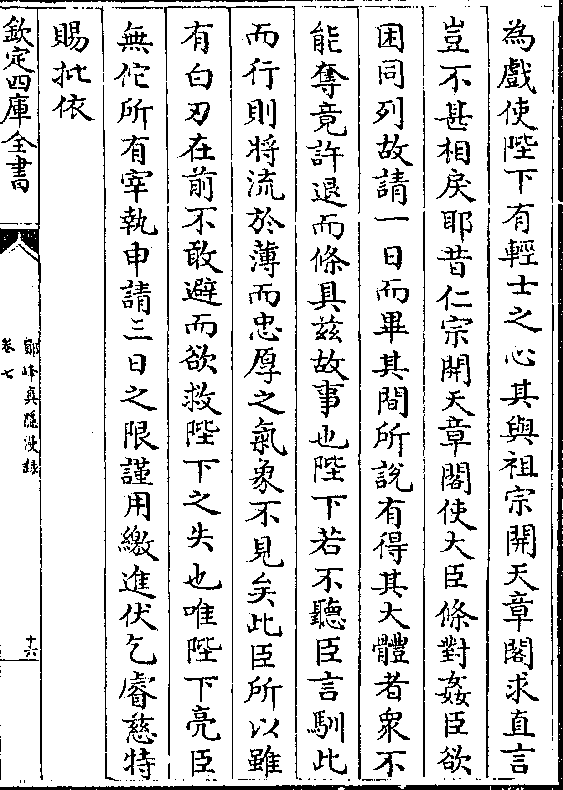 為戲使陛下有輕士之心其與祖宗開天章閣求直言
豈不甚相戾耶昔仁宗開天章閣使大臣條對姦臣欲
困同列故請一日而畢其間所說有得其大體者衆不
能奪竟許退而條具兹故事也陛下若不聽臣言馴此
而行則將流於薄而忠厚之氣象不見矣此臣所以雖
有白刃在前不敢避而欲救陛下之失也唯陛下亮臣
無佗所有宰執申請三日之限謹用繳進伏乞睿慈特
賜批依
欽定四庫全書
鄮峰真隱漫錄
卷七
十六